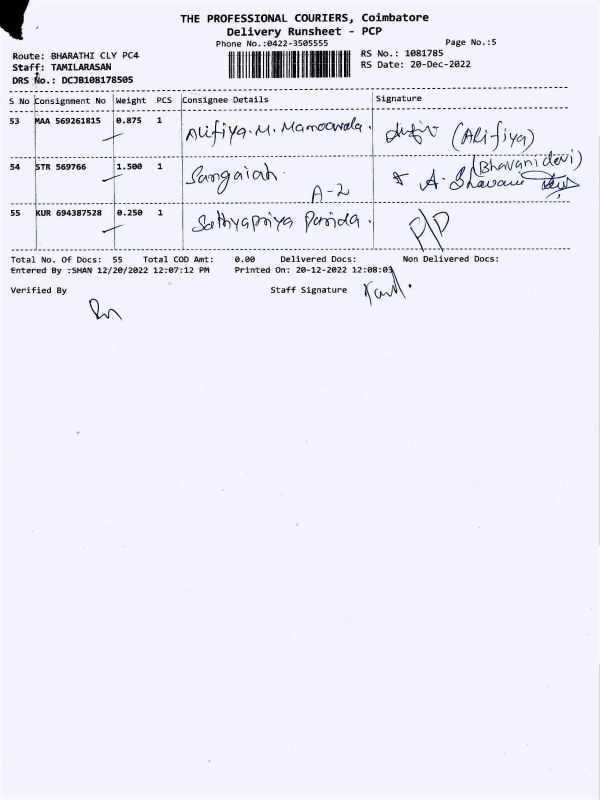 THE PROFESSIONAL COURIERS, Coimbatore
Delivery Runsheet - PCP
Phone No.:0422-3505555
Page No.:5
Route: BHARATHI CLY PC4
RS No.: 1081785
Staff: TAMILARASAN
RS Date: 20-Dec-2022
DRS No.: DCJB108178505
S No Consignment No Weight PCS Consignee Details Signature
53 MAA 569261815 0.875 1 Alifiya.M. (Alifiya)
(Bhavani devi)
54 STR 569766 1.500 1 Sangaiah. A. Bhavani
A-2
55 KUR 694387528 0.250 1 Sathyapriya Parida. P/P
Total No. Of Docs: 55 Total COD Amt: 0.00 Delivered Docs: Non Delivered Docs:
Entered By :SHAN 12/20/2022 12:07:12 PM Printed On: 20-12-2022 12:08:03
Verified By Staff Signature